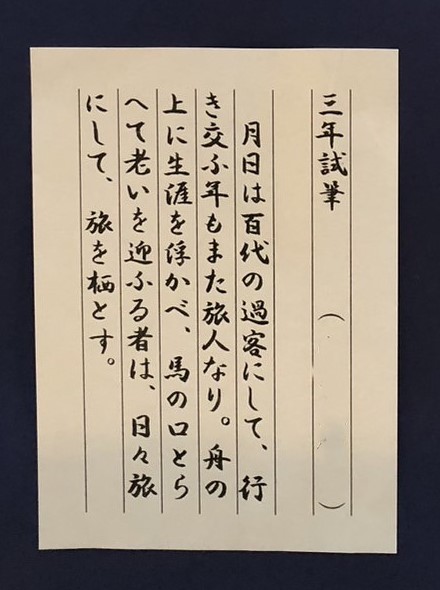 三年試筆（　　）
月日は百代の過客にして、行
き交ふ年もまた旅人なり。舟の
上に生涯を浮かべ、馬の口とら
へて老いを迎ふる者は、日々旅
にして、旅を栖とす。